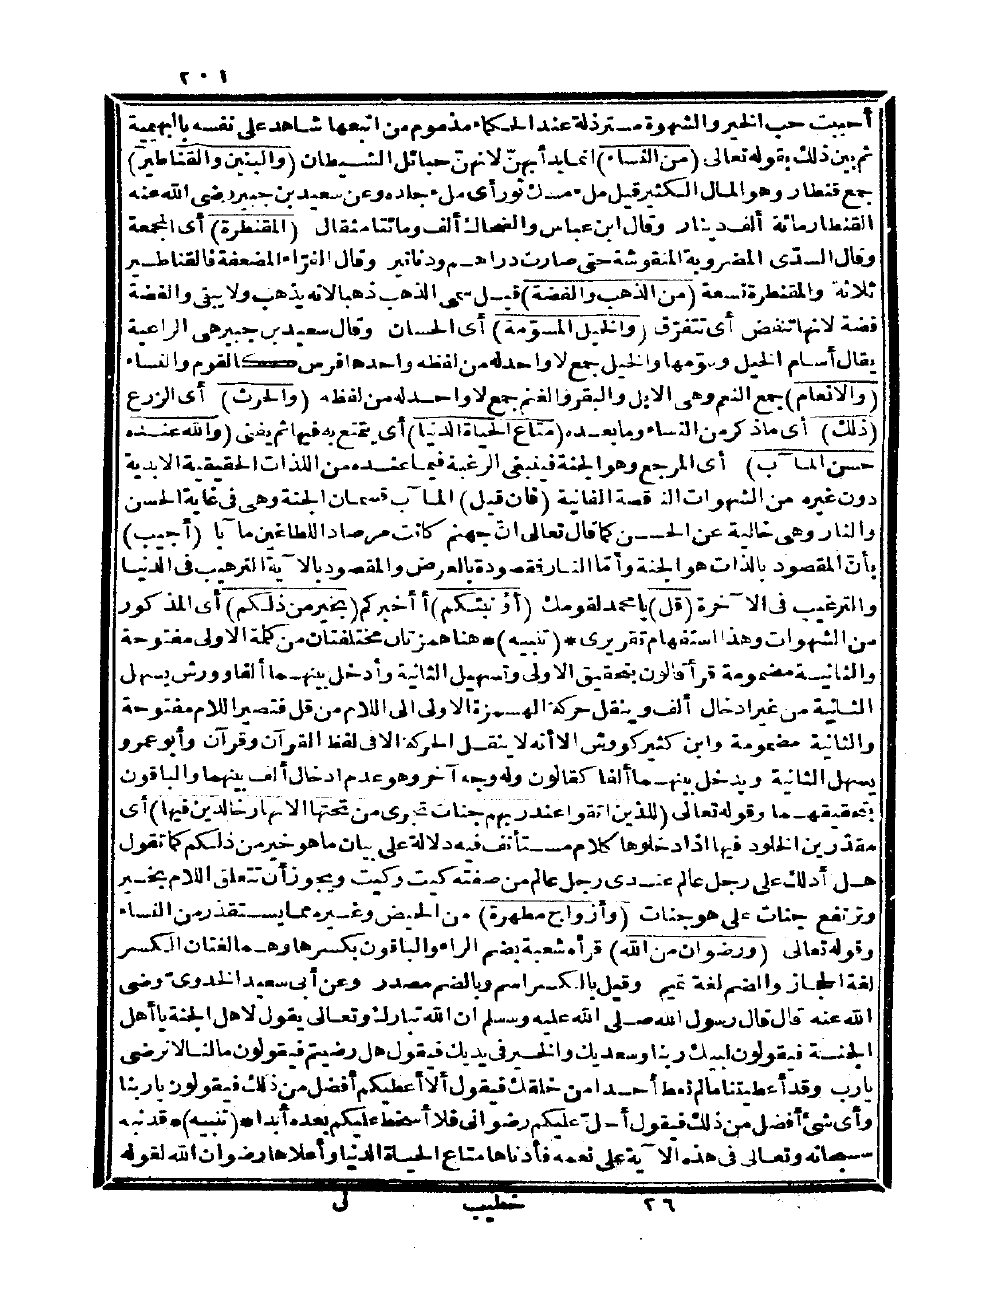 ٢٠١
أحببت حب الخير والشهوة مسترذلة عند الحكماء مذموم من اتبعها شاهد على نفسه بالبهيمية
ثم بين ذلك بقوله تعالى (من النساء) انما بدأ بهنّ لانهنّ حبائل الشيطان (والبنين والقناطير)
جمع قنطار وهو المال الكثير قيل ملء مسك ثور أى ملء جلده وعن سعيد بن جبير رضى الله عنه
القنطار مائة ألف دينار وقال ابن عباس والضحاك ألف ومائتا مثقال (المقنطرة) أى المجمعة
وقال السدّى المضروبة المنقوشة حتى صارت دراهم ودنانير وقال الفرّاء المضعفة فالقناطير
ثلاثة والمقنطرة تسعة (من الذهب والفضة) قيل سمى الذهب ذهبا لانه يذهب ولا يبقى والفضة
فضة لانها تنفض أى تتفرّق (والخيل المسوّمة) أى الحسان وقال سعيد بن جبير هى الراعية
يقال أسام الخيل وسوّمها والخيل جمع لا واحد له من لفظه واحدها فرس كالقوم والنساء
(والانعام) جمع النعم وهى الابل والبقر والغنم جمع لا واحد له من لفظه (والحرث) أى الزرع
(ذلك) أى ماذكر من النساء وما بعده (متاع الحياة الدنيا) أى يتمتع به فيها ثم يفنى (والله عنده
حسن المآب) أى المرجع وهو الجنة فينبغى الرغبة فيما عنده من اللذات الحقيقية الابدية
دون غيره من الشهوات الناقصة الفانية (فان قيل) المآب قسمان الجنة وهى فى غاية الحسن
والنار وهى خالية عن الحسن كما قال تعالى انّ جهنم كانت مرصادا للطاغين مآبا (أجيب)
بأنّ المقصود بالذات هو الجنة وأمّا النار فمقصودة بالعرض والمقصود بالآية الترهيب فى الدنيا
والترغيب فى الآخرة (قل) يا محمد لقومك (أؤنبئكم) أأخبركم (بخير من ذلكم) أى المذكور
من الشهوات وهذا استفهام تقريرى * (تنبيه) * هنا همزتان مختلفتان من كلمة الاولى مفتوحة
والثانية مضمومة قرأ قالون بتحقيق الاولى وتسهيل الثانية وأدخل بينهما ألفا وورش يسهل
الثانية من غير ادخال ألف وينقل حركة الهمزة الاولى الى اللام من قل فتصير اللام مفتوحة
والثانية مضمومة وابن كثير كورش الا أنه لا ينقل الحركة الا فى لفظ القرآن وقرآن وأبو عمرو
يسهل الثانية ويدخل بينهما ألفا كقالون وله وجه آخر وهو عدم ادخال ألف بينهما والباقون
بتحقيقهما وقوله تعالى (للذين اتقوا عند ربهم جنات تجرى من تحتها الانهار خالدين فيها) أى
مقدّرين الخلود فيها اذا دخلوها كلام مستأنف فيه دلالة على بيان ما هو خير من ذلكم كما تقول
هل أدلك على رجل عالم عندى رجل عالم من صفته كيت وكيت ويجوز أن تتعلق اللام بخير
وترتفع جنات على هو جنات (وأزواج مطهرة) من الحيض وغيره مما يستقذر من النساء
وقوله تعالى (ورضوان من الله) قرأه شعبة بضم الراء والباقون بكسرها وهما لغتان الكسر
لغة الحجاز والضم لغة تميم وقيل بالكسر اسم وبالضم مصدر وعن أبى سعيد الخدرىّ رضى
الله عنه قال قال رسول الله صلى الله عليه وسلم ان الله تبارك وتعالى يقول لاهل الجنة يا أهل
الجنة فيقولون لبيك ربنا وسعديك والخير فى يديك فيقول هل رضيتم فيقولون ما لنا لا نرضى
يارب وقد أعطيتنا ما لم تعط أحدا من خلقك فيقول ألا أعطيكم أفضل من ذلك فيقولون يا ربنا
وأى شئ أفضل من ذلك فيقول أحلّ عليكم رضوانى فلا أسخط عليكم بعده أبدا * (تنبيه) * قد نبه
سبحانه وتعالى فى هذه الآية على نعمه فأدناها متاع الحياة الدنيا وأعلاها رضوان الله لقوله
٢٦ خطيب ل